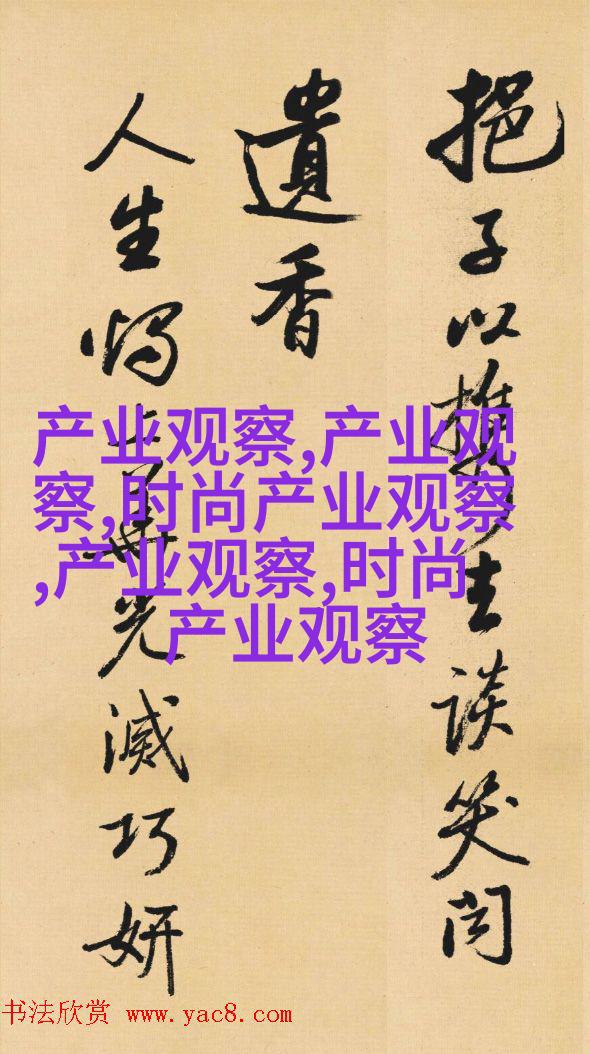 挹子以攜生談笑
遺香
人生光滅巧妍
产业观察,产业观
察,时尚产业观察
,产业观察,时尚
产业观察
书法欣赏 www.yac8.com